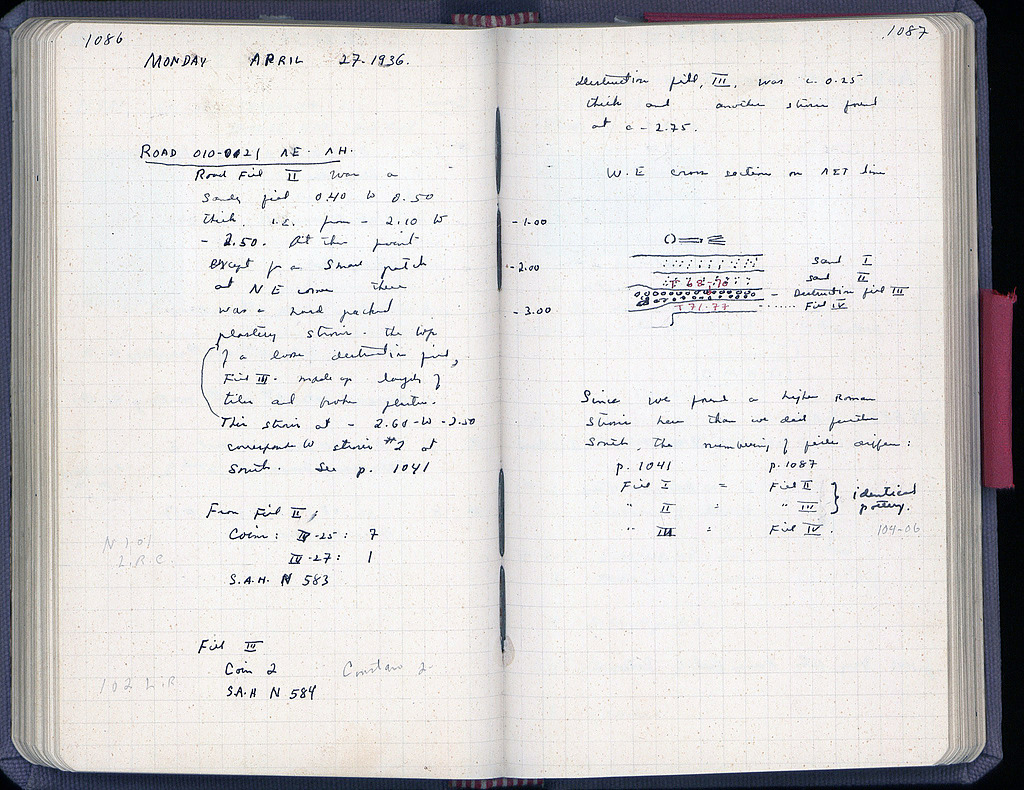 1086
MONDAY APRIL 27. 1936.
ROAD 010-0021 ΛE - ΛH.
Road Fill II was a
sandy fill 0.40 to 0.50
thick. i.e. from - 2.10 to
- 2.50. At this point
except for a small patch
at NE corner there
was a hard packed
plastery strosis - the top
of a loose destruction fill,
Fill III. made up largely of
tiles and broken plaster.
This strosis at - 2.60 to - 2.50
corresponds to strosis #2 at
South. See p. 1041
From Fill II;
Coins: IV-25: 7
IV-27: 1
S.A.H. N 583
L.R.C.
Fill III
Coin 2
S.A.H N 584
102 L.R.
1087
destruction fill, III, was c. 0.25
thick and another strosis found
at c - 2.75.
W.E cross section on ΛΣΤ line
- 1.00
- 2.00
- 3.00
Sand I
Sand II
Destruction fill III
Fill IV
T 68-70
T 71-77
Since we found a higher Roman
strosis here than we did further
South, the numbering of fills differs:
p. 1041 p. 1087
Fill I = Fill II
" II = " III } identical pottery.
" III = Fill IV.
104-06